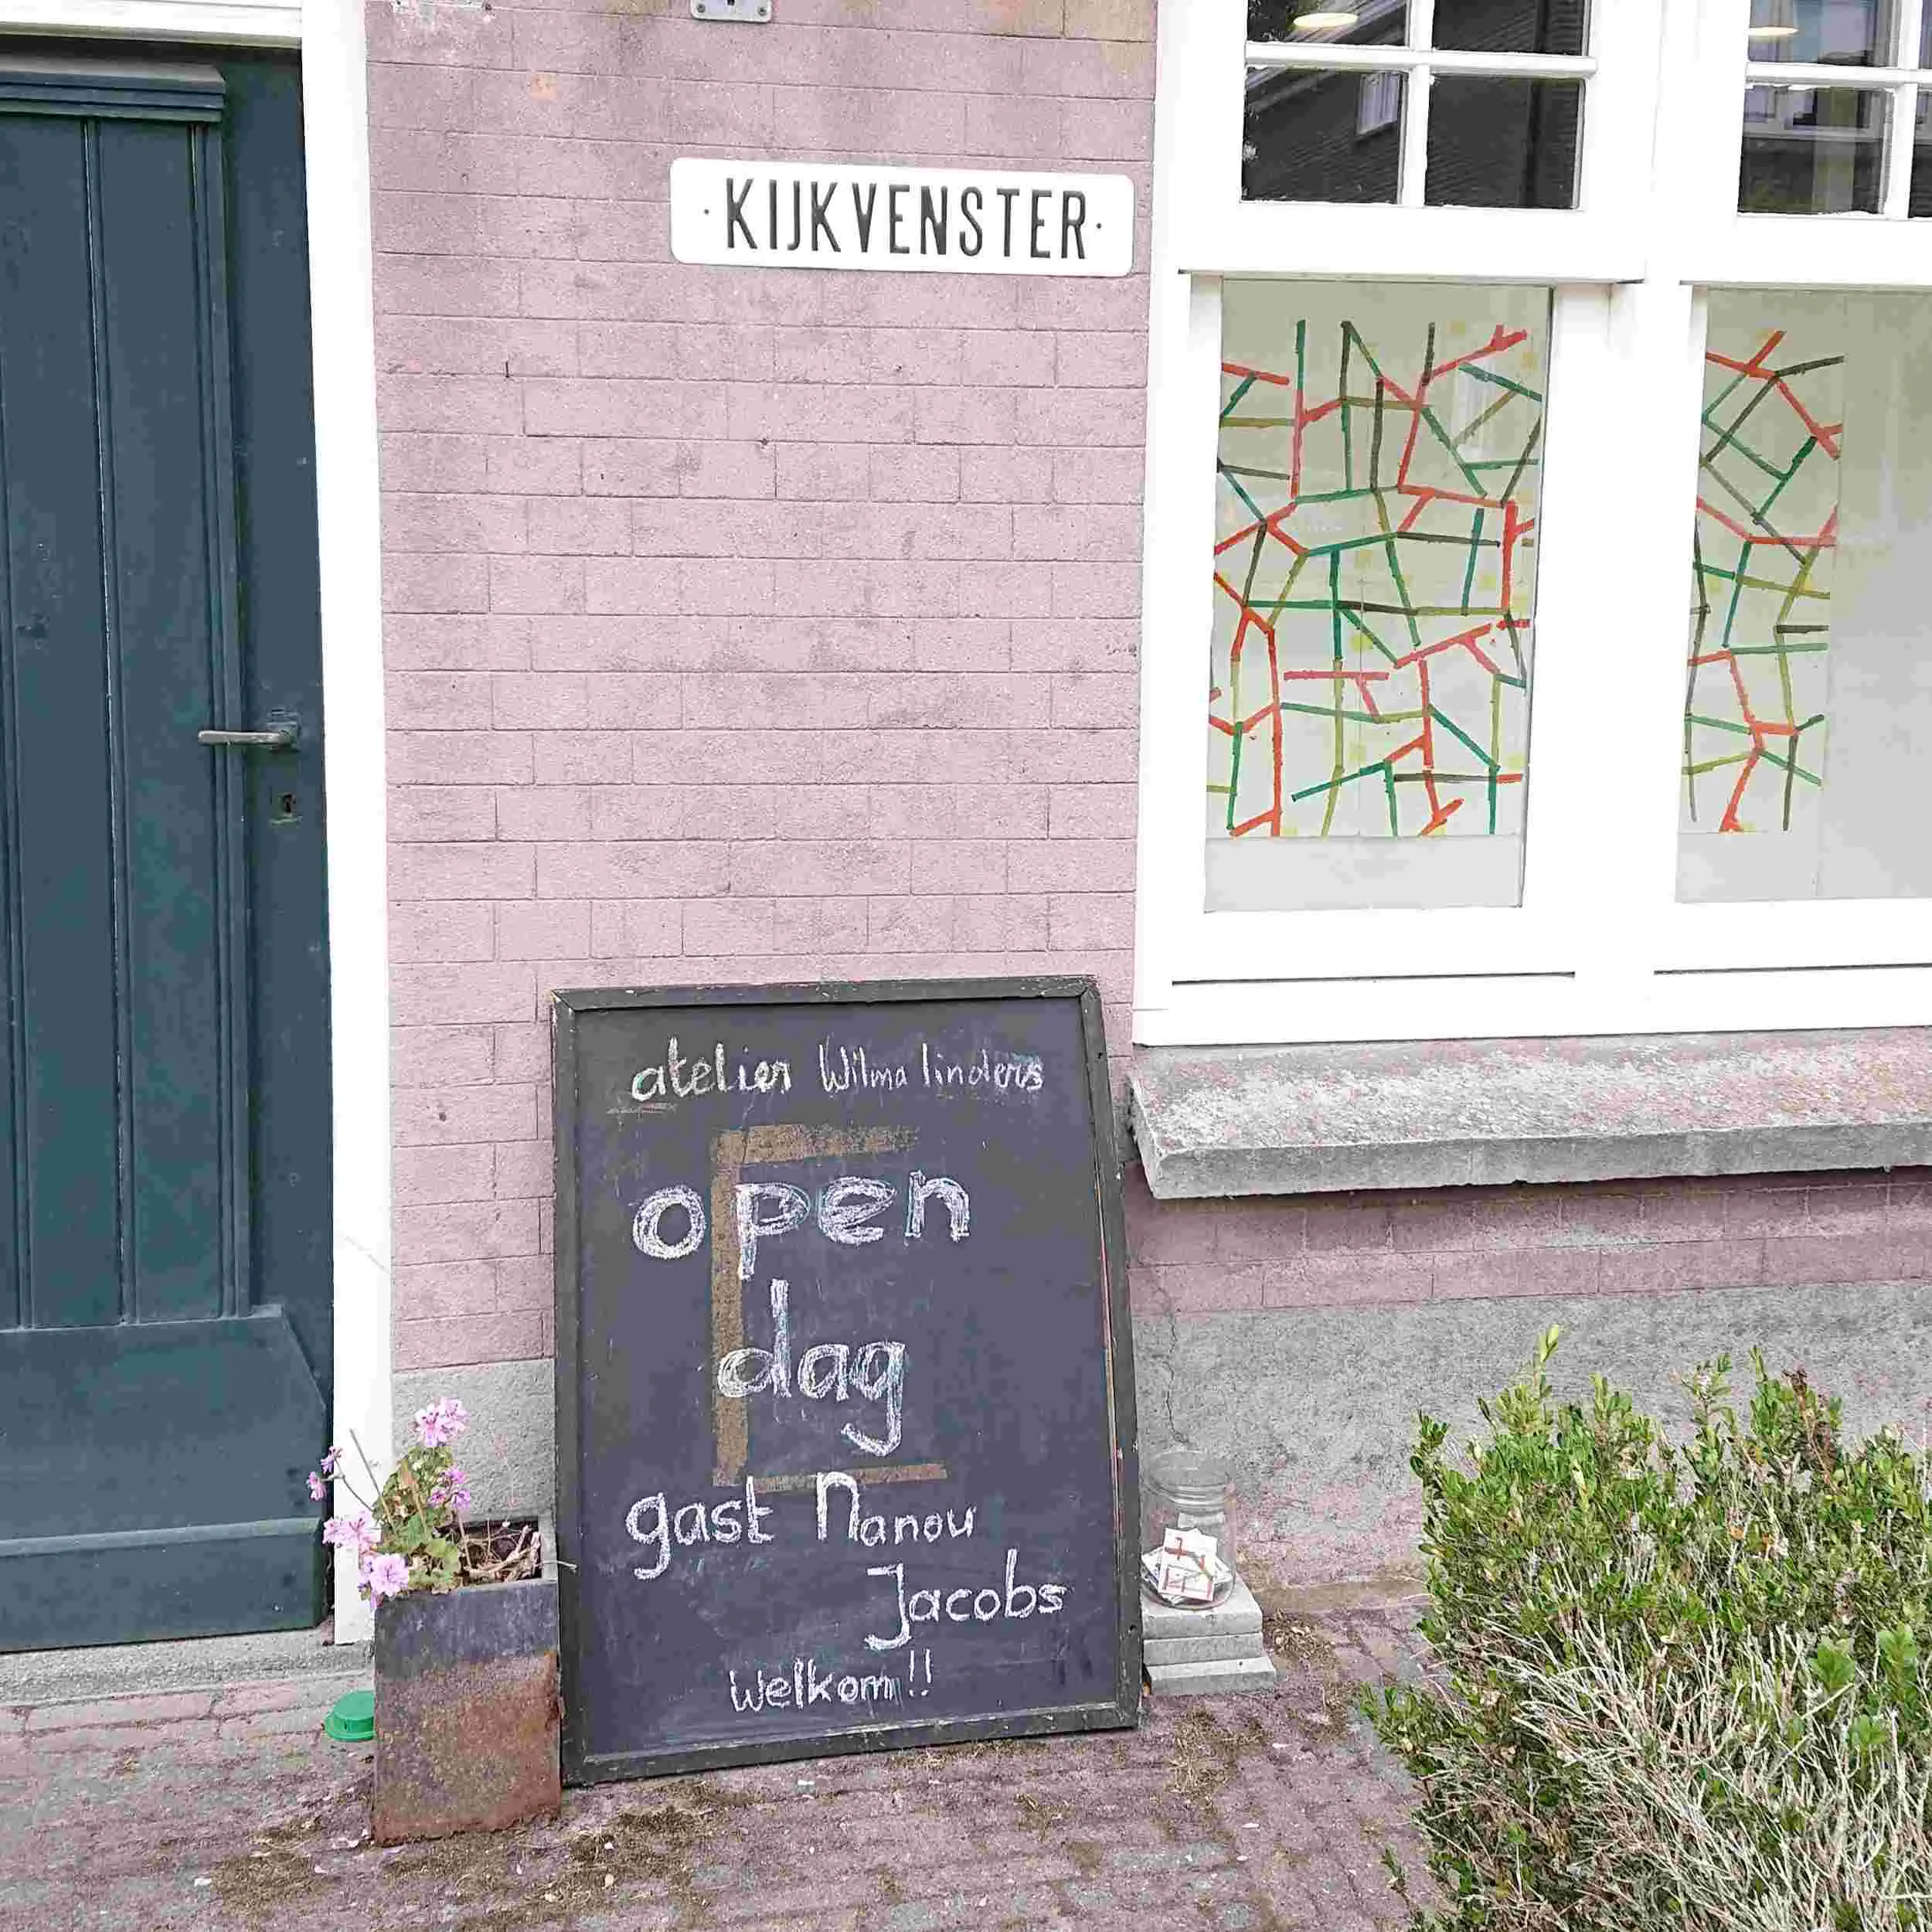 ·KIJKVENSTER·
atelier Wilma linders
open
dag
gast Nanou
Jacobs
Welkom!!